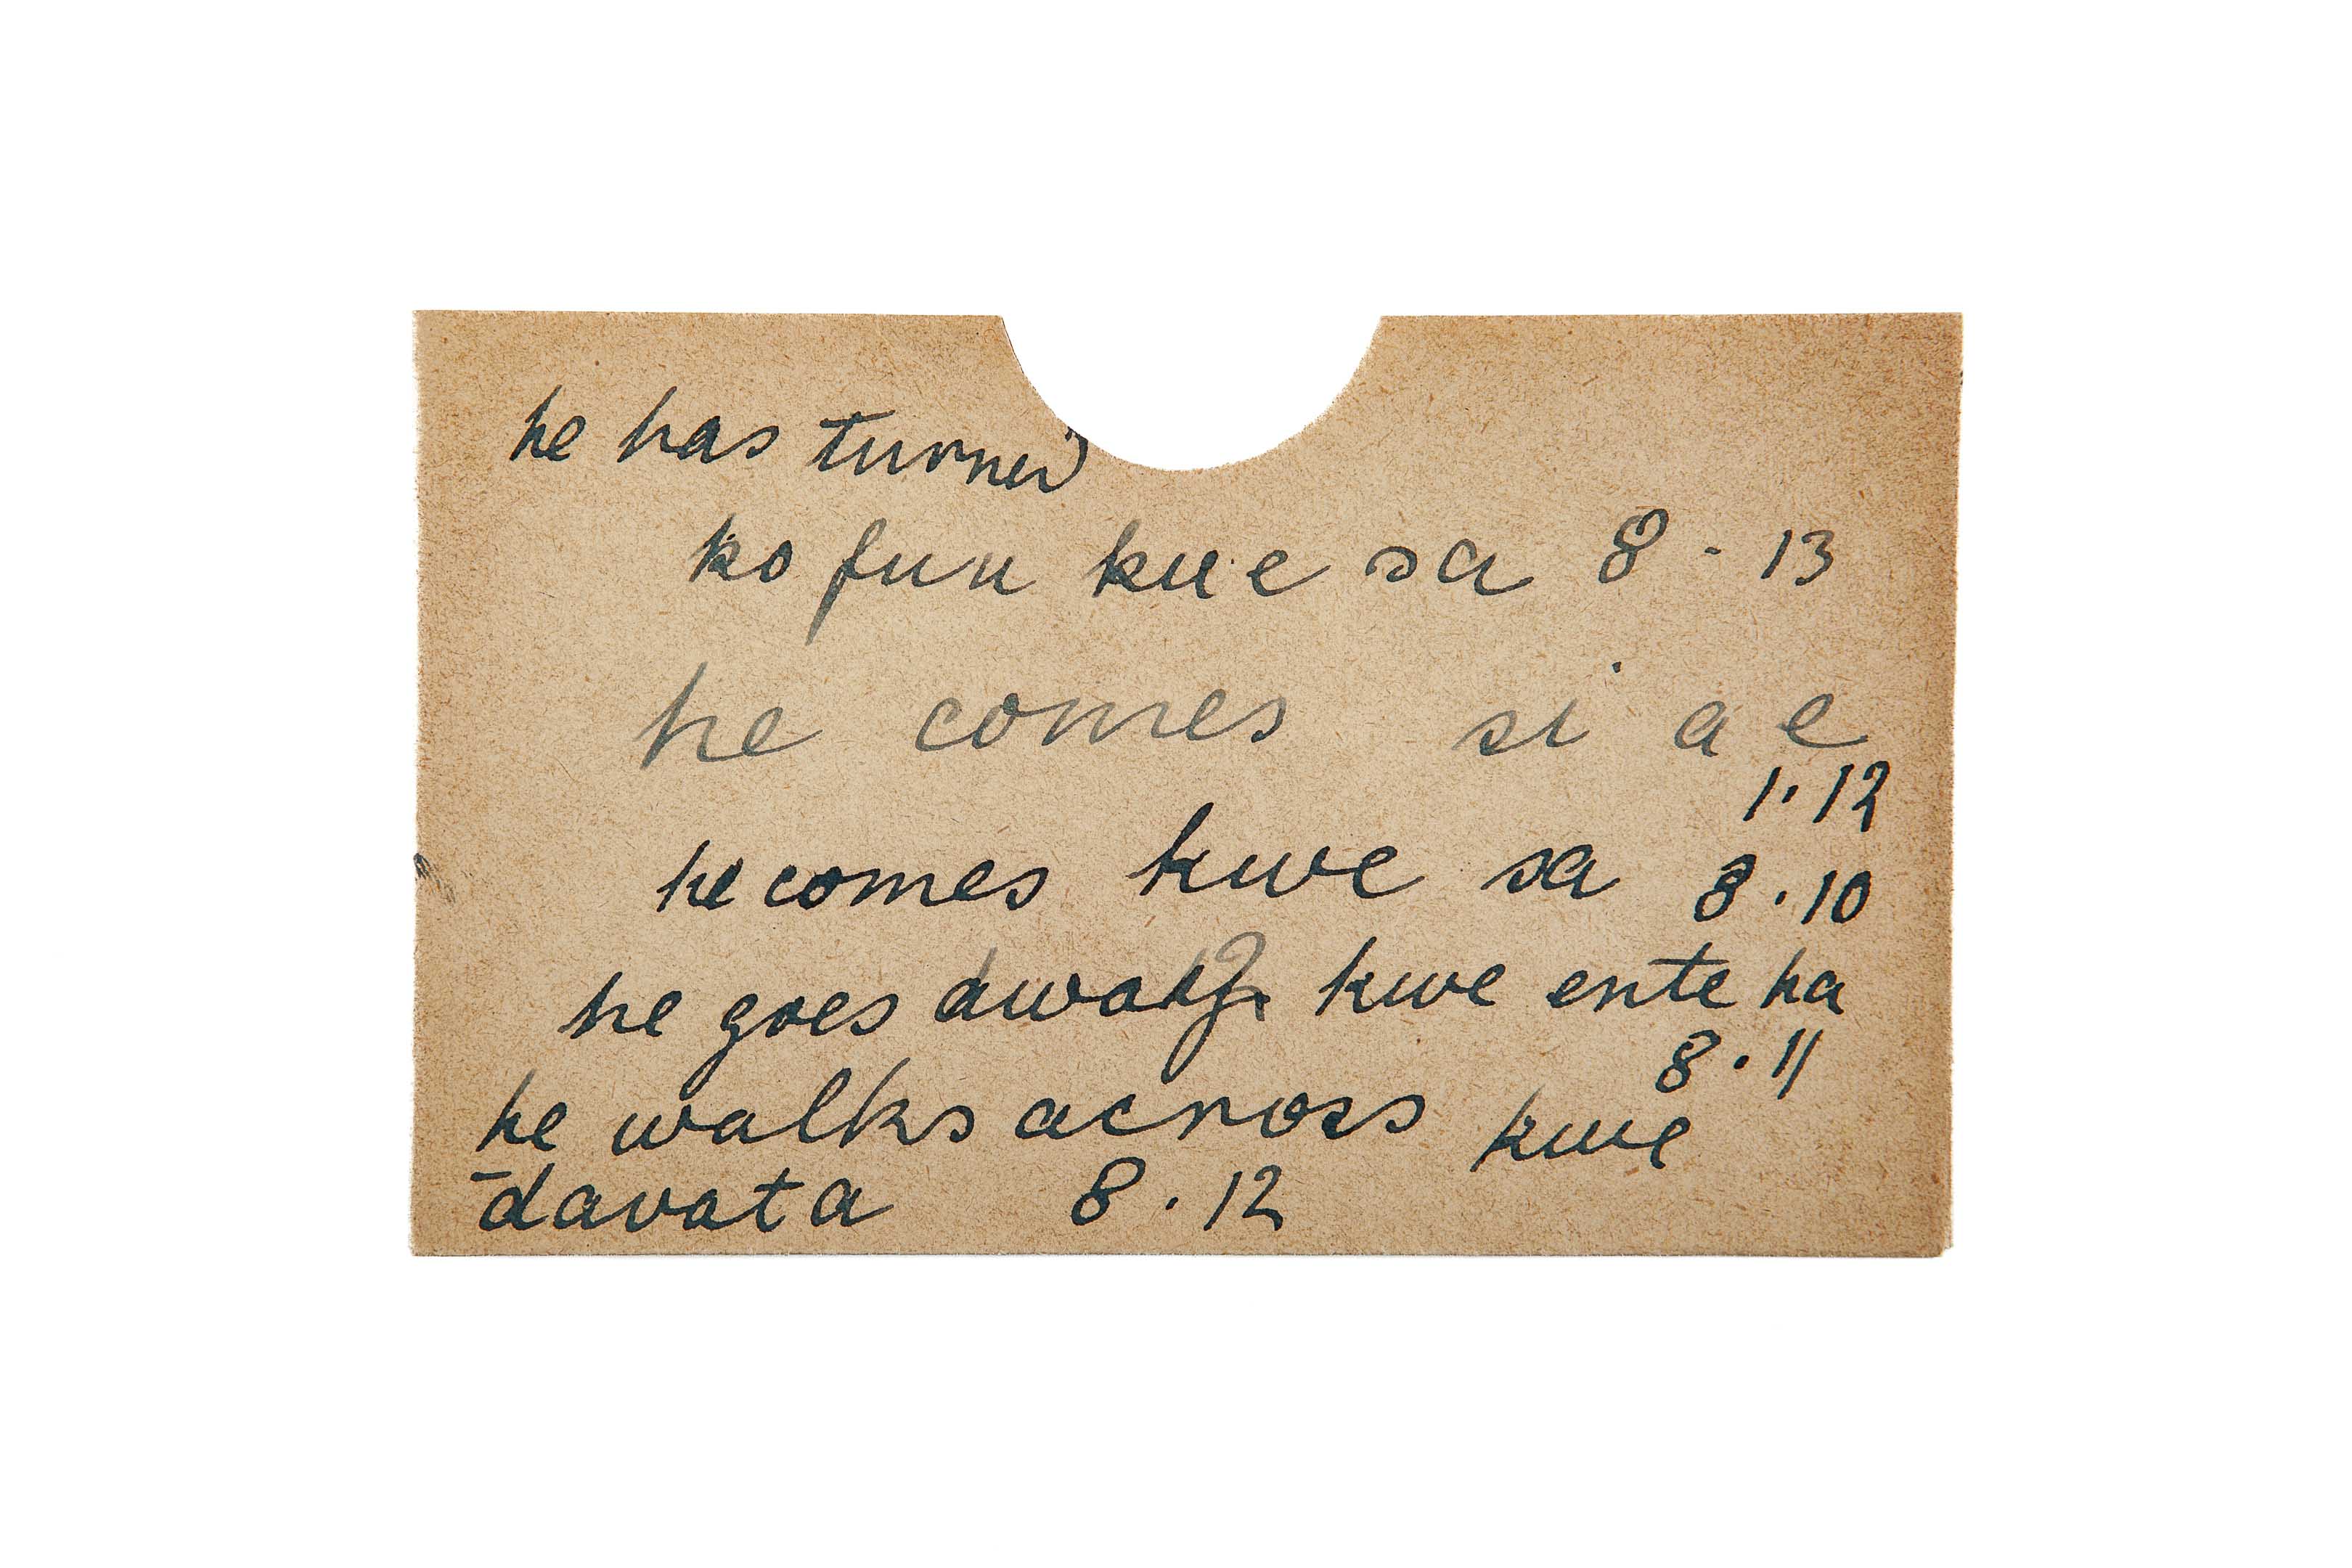 he has turned
ko fun kue sa 8 - 13
he comes si a e
1.12
he comes kwe sa 8.10
he goes kwe ente ha
8.11
he walks across kwe
davata 8.12